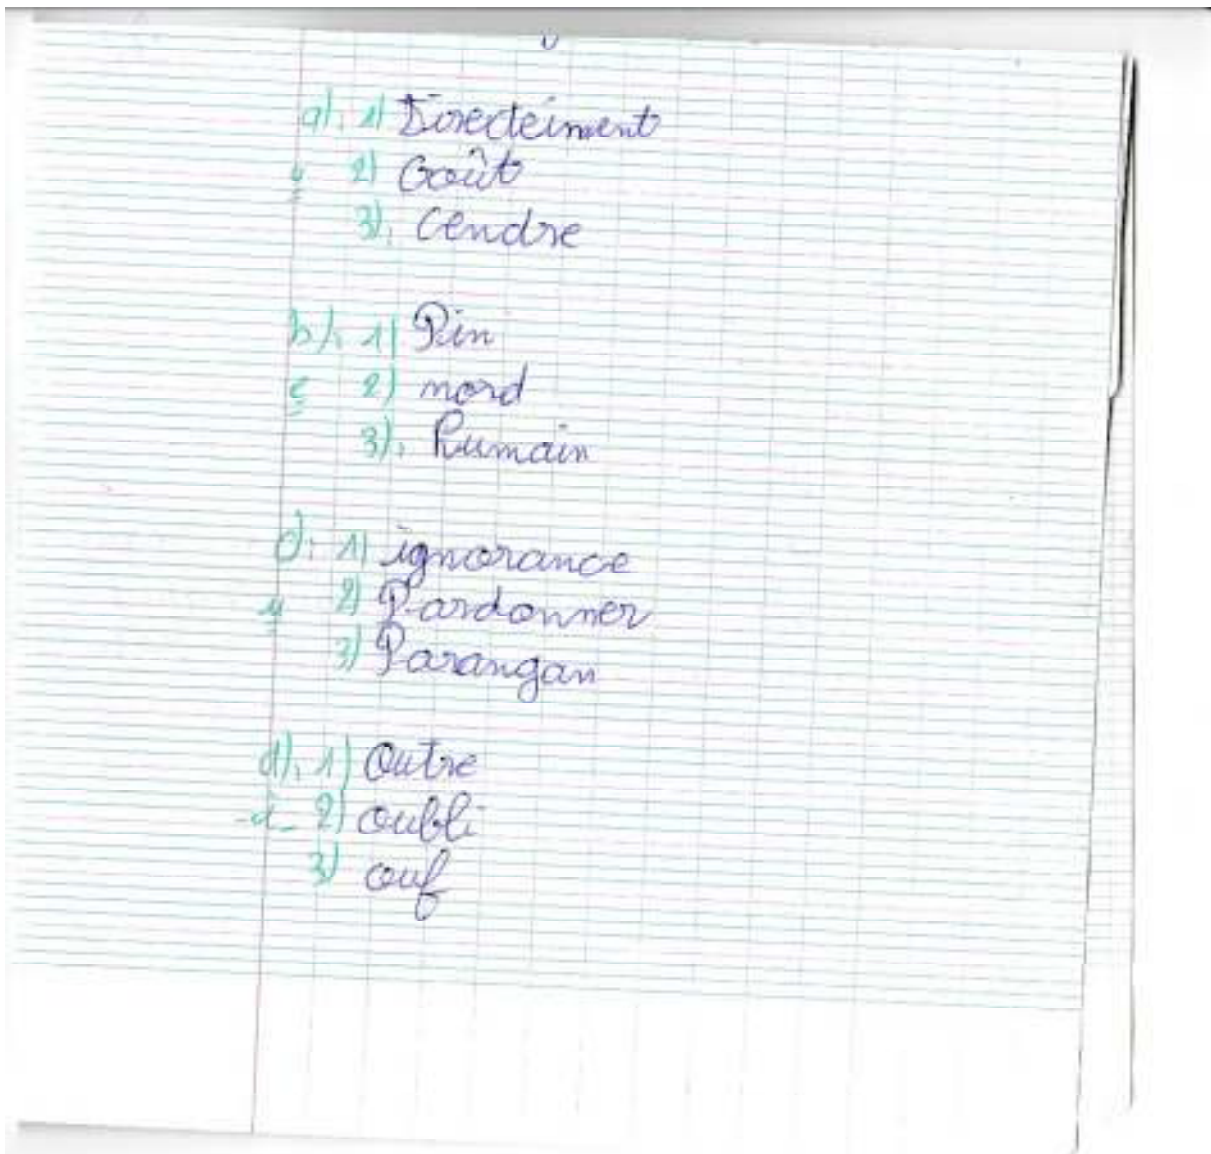 a). 1) Directeiment
2) Goût
3). Cendre
b). 1) Pin
2) mord
3). Rumain
c). 1) ignorance
2) Pardonner
3) Parangan
d). 1) Outre
2) oubli
3) ouf